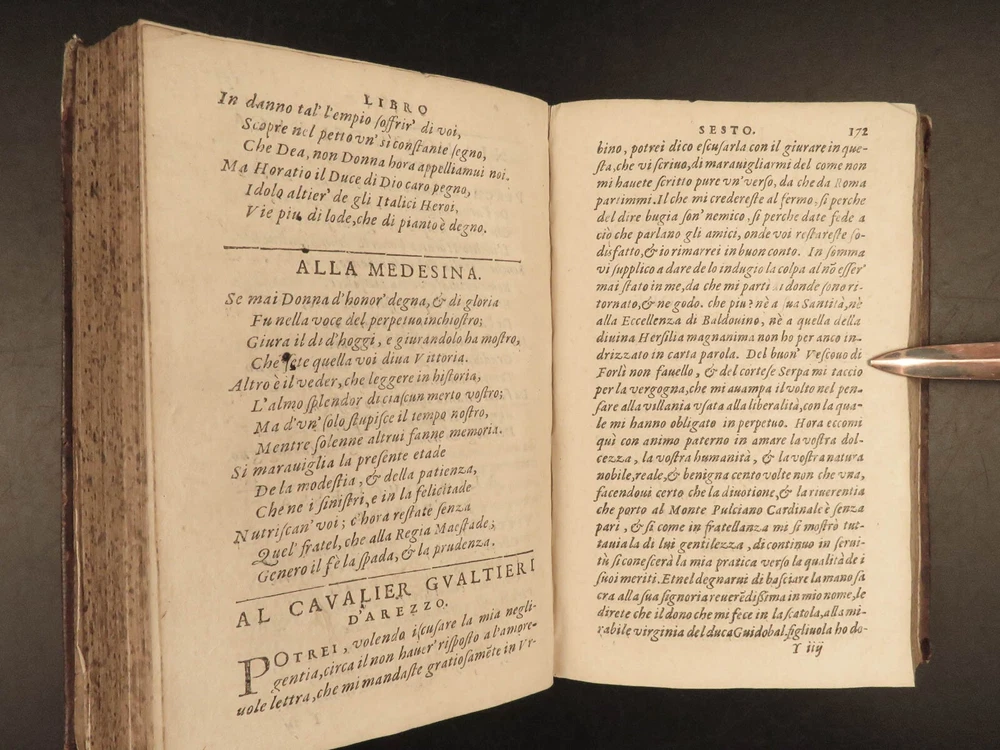 LIBRO
In danno tal' l'empio soffrir' di voi,
Scopre nel petto vn' sì constante segno,
Che Dea, non Donna hora appelliamui noi.
Ma Horatio il Duce di Dio caro pegno,
Idolo altier' de gli Italici Heroi,
Vie piu di lode, che di pianto è degno.
ALLA MEDESINA.
Se mai Donna d'honor' degna, & di gloria
Fu nella voce del perpetuo inchiostro;
Giura il dì d'hoggi, e giurandolo ha mostro,
Che sete quella voi diua Vittoria.
Altro è il veder, che leggere in historia,
L'almo splendor di ciascun merto vostro;
Ma d'vn' solo stupisce il tempo nostro,
Mentre solenne altrui fanne memoria.
Si marauiglia la presente etade
De la modestia, & della patienza,
Che ne i sinistri, e in la felicitade
Nutriscan' voi; c'hora restate senza
Quel' fratel, che alla Regia Maestade;
Genero il fè la spada, & la prudenza.
AL CAVALIER GVALTIERI
D'AREZZO.
POTREI, volendo iscusare la mia negli-
gentia, circa il non hauer' risposto a l'amore-
uole lettra, che mi mandaste gratiosamẽte in Vr-
SESTO. 172
bino, potrei dico escusarla con il giurare in que-
sta, che vi scriuo, di marauigliarmi del come non
mi hauete scritto pure vn' verso, da che da Roma
partimmi. Il che mi credereste al fermo, si perche
del dire bugia son' nemico, si perche date fede a
ciò che parlano gli amici, onde voi restareste so-
disfatto, & io rimarrei in buon conto. In somma
vi supplico a dare de lo indugio la colpa al nõ esser'
mai stato in me, da che mi parti di donde sono ri-
tornato, & ne godo. che piu? nè a sua Santità, nè
alla Eccellenza di Baldouino, nè a quella della
diuina Hersilia magnanima non ho per anco in-
drizzato in carta parola. Del buon' Vescouo di
Forlì non fauello, & del cortese Serpa mi taccio
per la vergogna, che mi auampa il volto nel pen-
sare alla villania vsata alla liberalità, con la qua-
le mi hanno obligato in perpetuo. Hora eccomi
quì con animo paterno in amare la vostra dol-
cezza, la vostra humanità, & la vostra natura
nobile, reale, & benigna cento volte non che vna,
facendoui certo che la diuotione, & la riuerentia
che porto al Monte Pulciano Cardinale è senza
pari, & si come in fratellanza mi si mostrò tut-
tauia la di lui gentilezza, di continuo in serui-
tù si conescerà la mia pratica verso la qualità de i
suoi meriti. Et nel degnarui di basciare la mano sa
cra alla sua signoria reuerẽdissima in mio nome, le
direte che il dono che mi fece in la scatola, alla mi-
rabile virginia del duca Guidobal. figliuola ho do-
Y iiij